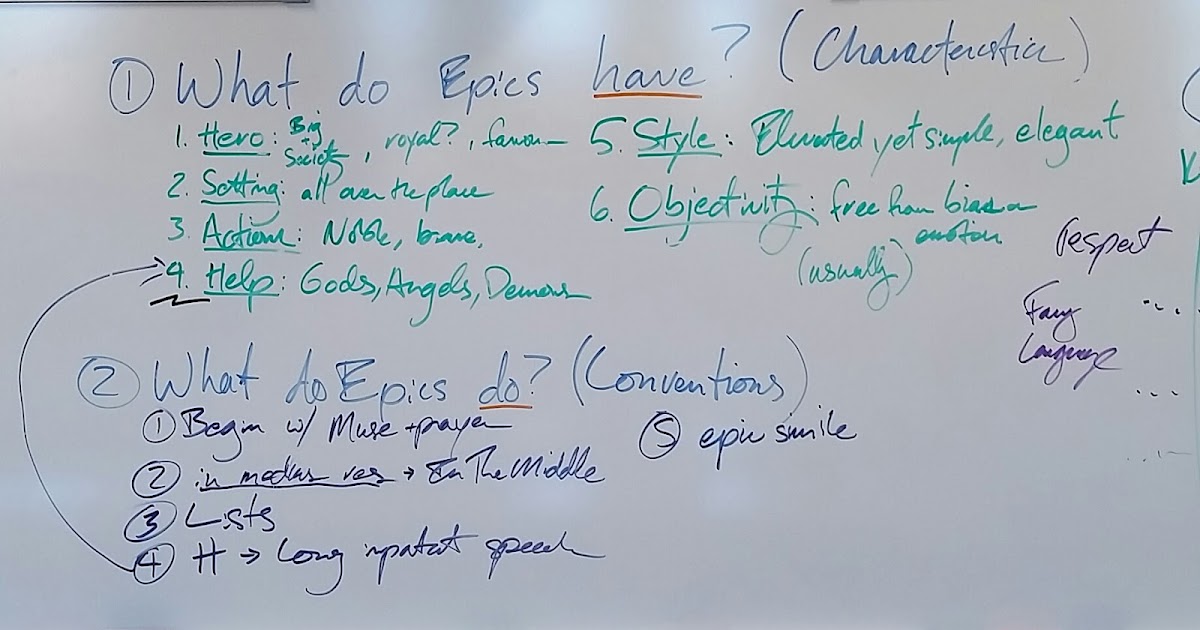 ① What do Epics have? (Characteristics)
1. Hero: Big + Society, royal?, famous
2. Setting: all over the place
3. Actions: Noble, brave,
4. Help: Gods, Angels, Demons
5. Style: Elevated yet simple, elegant
6. Objectivity: free from bias or
emotion
(usually)
respect
Fancy
Language
② What do Epics do? (Conventions)
① Begin w/ Muse + prayer
② in medias res → In The Middle
③ Lists
④ H → Long speech
⑤ epic simile